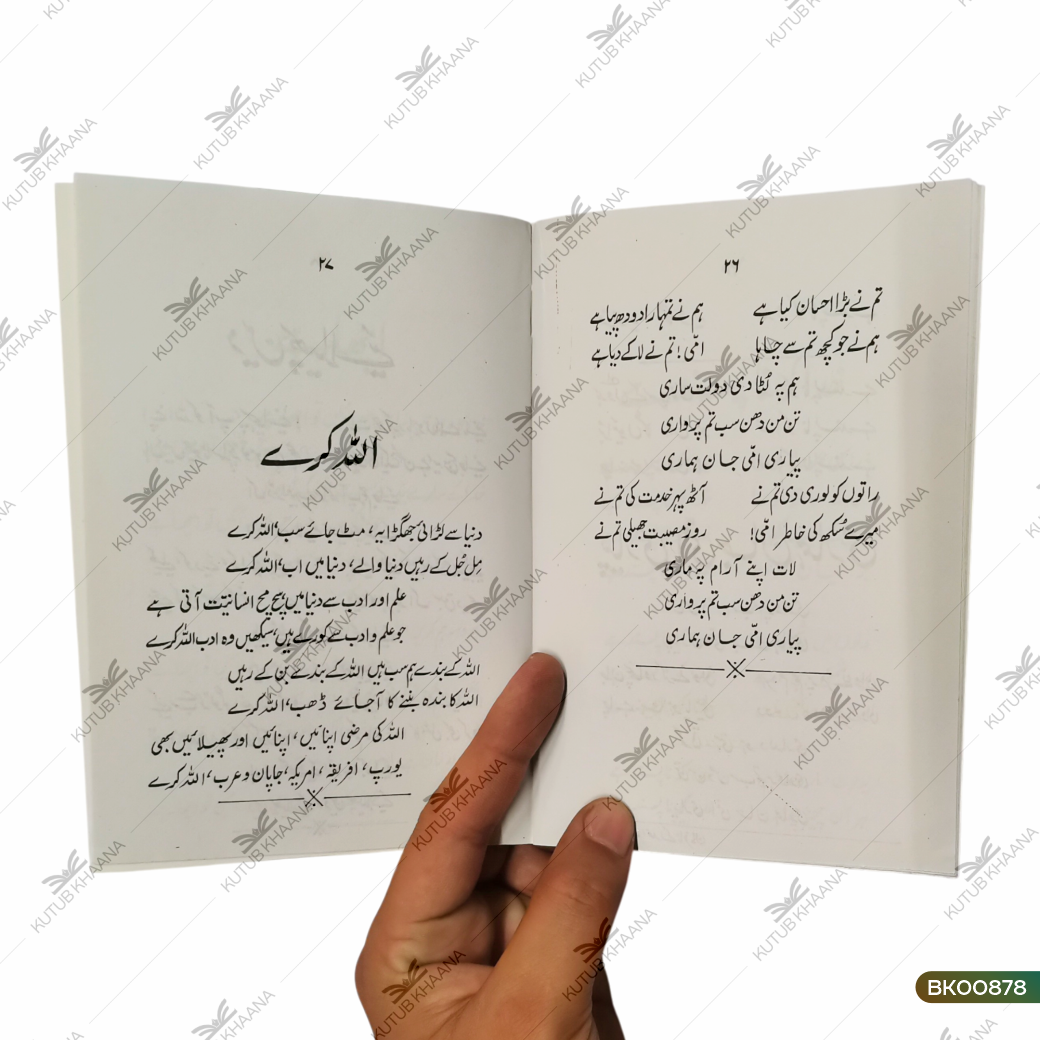 ۲۶
تم نے بڑا احسان کیا ہے ہم نے تمہارا دودھ پیا ہے
ہم نے جو کچھ تم سے چاہا امّی! تم نے لا کے دیا ہے
ہم پہ لُٹا دی دولت ساری
تن من دھن سب تم پر واری
پیاری امّی جان ہماری
راتوں کو لوری دی تم نے آٹھ پہر خدمت کی تم نے
میرے سُکھ کی خاطر امّی! روز مصیبت جھیلی تم نے
لات اپنے آرام پہ ماری
تن من دھن سب تم پر واری
پیاری امّی جان ہماری
۲۷
اللہ کرے
دنیا سے لڑائی جھگڑا یہ، مٹ جائے سب، اللہ کرے
مِل جُل کے رہیں دنیا والے، دنیا میں اب، اللہ کرے
علم اور ادب سے دنیا میں سچ مچ انسانیت آتی ہے
جو علم و ادب سے کورے ہیں، سیکھیں وہ ادب اللہ کرے
اللہ کے بندے ہم سب ہیں اللہ کے بندے بن کے رہیں
اللہ کا بندہ بننے کا آجائے ڈھب، اللہ کرے
اللہ کی مرضی اپنائیں، اپنائیں اور پھیلائیں بھی
یورپ، افریقہ، امریکہ، جاپان و عرب، اللہ کرے
KUTUB KHAANA
BK00878